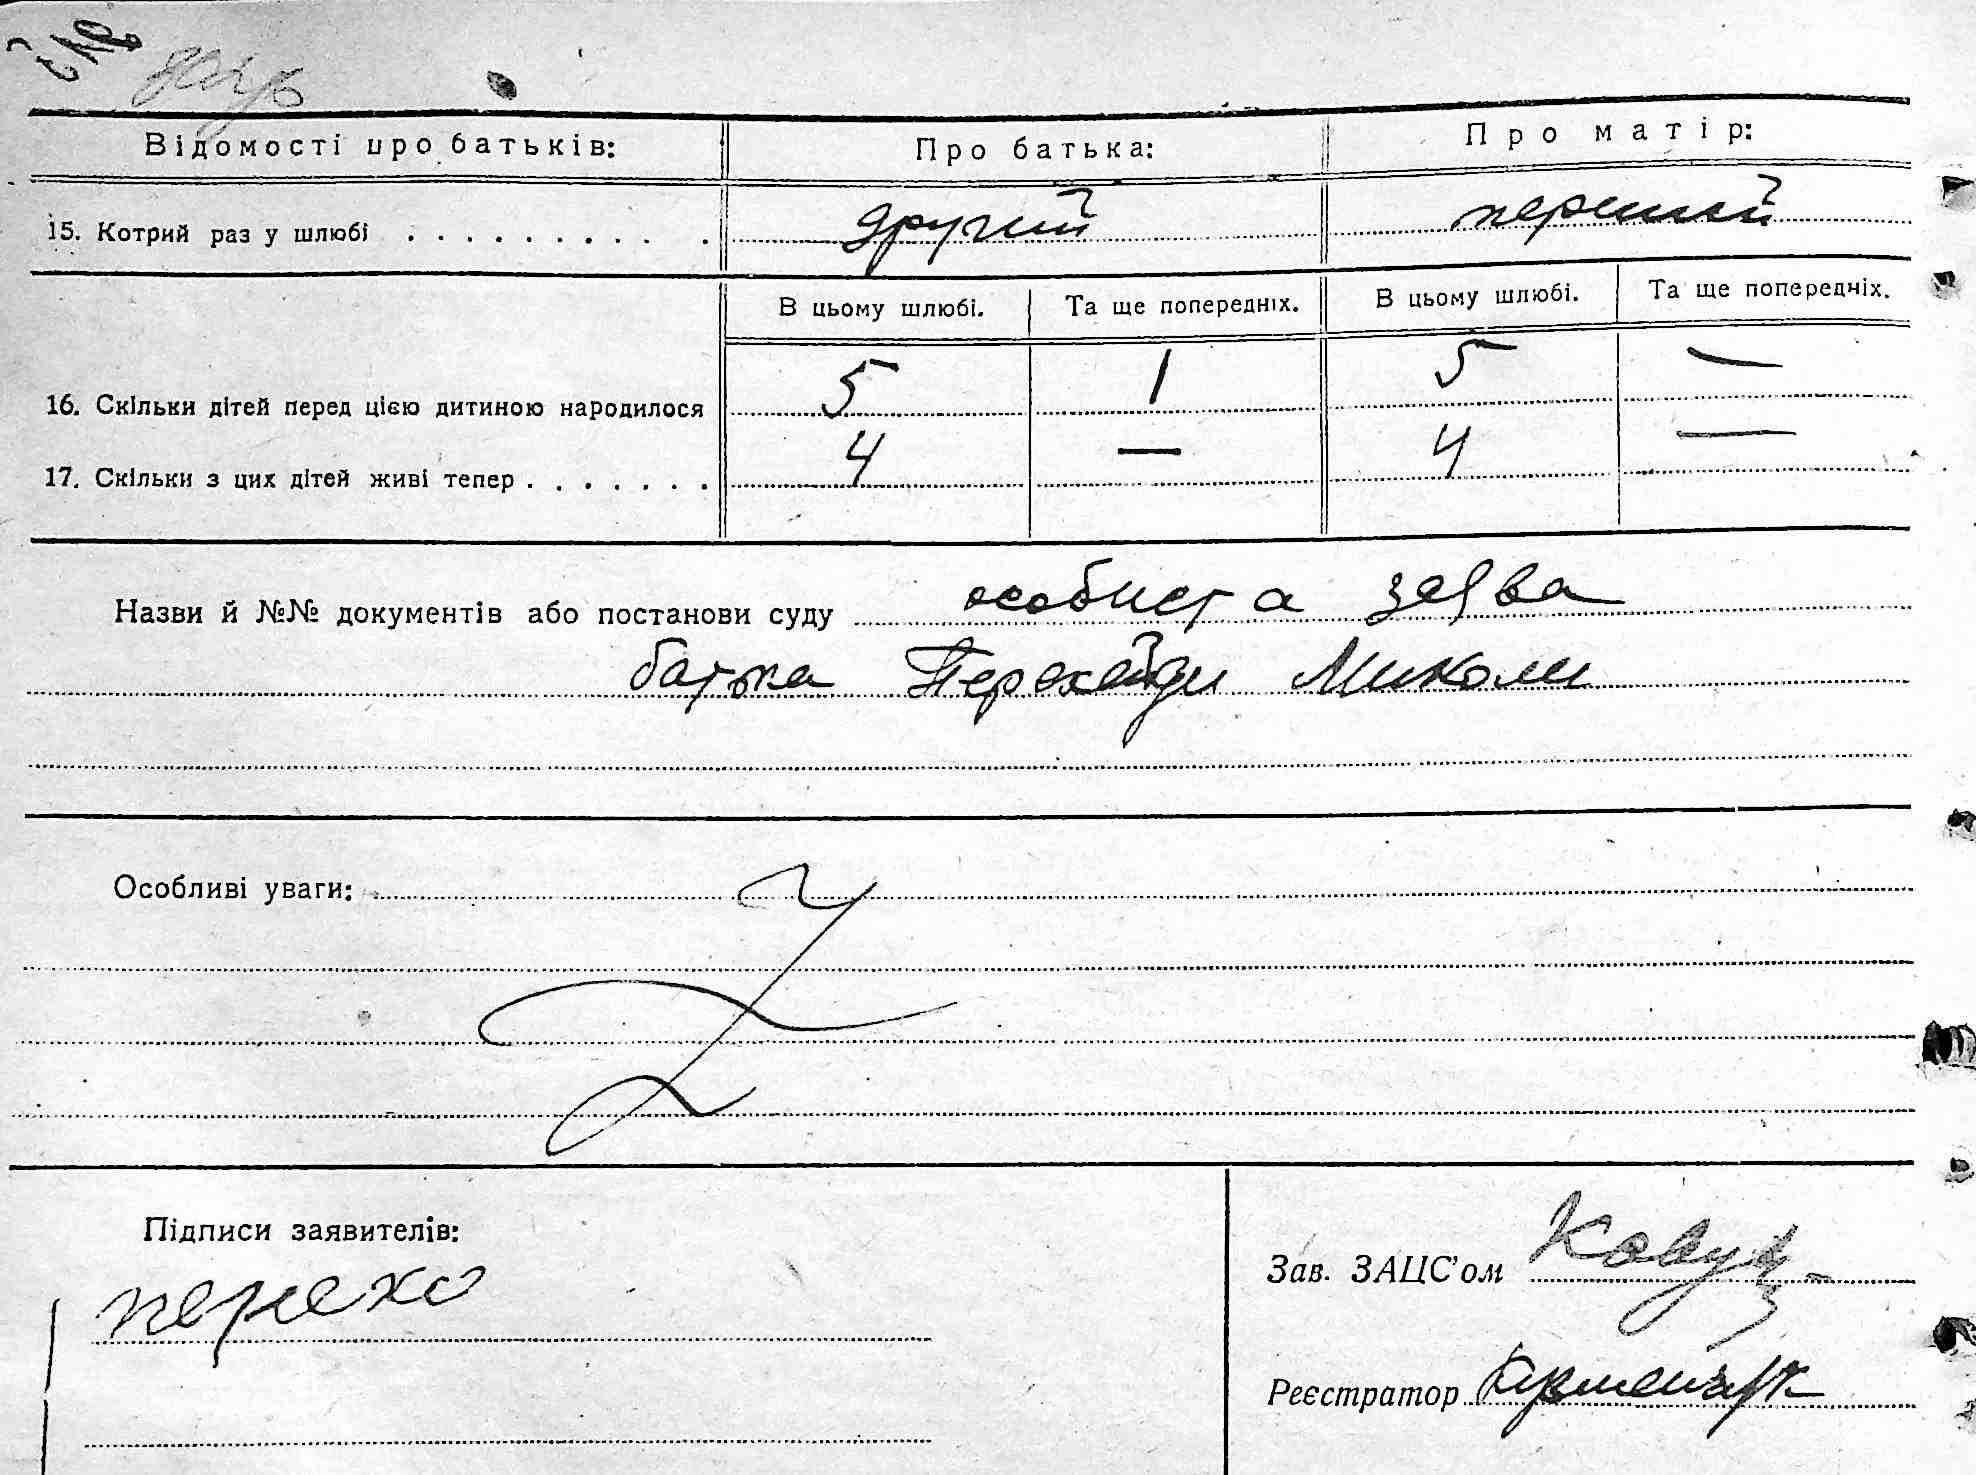 Відомості про батьків: Про батька: Про матір:
15. Котрий раз у шлюбі . . . . . . . . . . другий перший
В цьому шлюбі. Та ще попередніх. В цьому шлюбі. Та ще попередніх.
16. Скільки дітей перед цією дитиною народилося 5 1 5 —
17. Скільки з цих дітей живі тепер . . . . . . . 4 — 4 —
Назви й №№ документів або постанови суду особиста заява
батька Миколи
Особливі уваги:
Підписи заявителів:
перехо
Зав. ЗАЦС'ом
Реєстратор